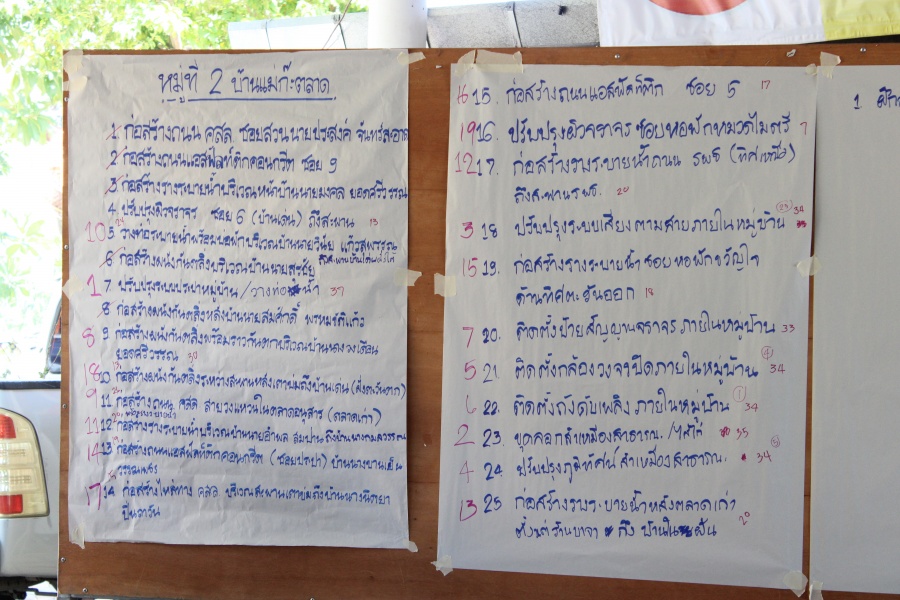 หมู่ที่ 2 บ้านแม่ก๊ะตลาด
1 ก่อสร้างถนน คสล ซอยสวนนายประสงค์ จันทร์สะอาด
2 ก่อสร้างถนนแอสฟัลท์ติกคอนกรีต ซอย 9
3 ก่อสร้างรางระบายน้ำบริเวณหน้าบ้านนายมงคล ยอดศรีวรรณ
4 ปรับปรุงผิวจราจร ซอย 6 (บ้านเด่น) ถึงสะพาน 13
10 5 วางท่อระบายน้ำพร้อมบ่อพักบริเวณบ้านนายวินัย แก้วสุพรรณ
6 ก่อสร้างผนังกันตลิ่งบริเวณบ้านนายสุรชัย
1 7 ปรับปรุงระบบประปาหมู่บ้าน/วางท่อน้ำ 37
8 ก่อสร้างผนังกันตลิ่งหลังบ้านนายสมศักดิ์ พรหมชาติแก้ว
8 9 ก่อสร้างผนังกันตลิ่งพร้อมราวกันตกบริเวณบ้านนางบัวเดือน
ยอดศรีวรรณ 30
18 10 ก่อสร้างผนังกันตลิ่งระหว่างสะพานหลังเตาย่มถึงบ้านเด่น (ฝั่งตะวันตก)
9 11 ก่อสร้างถนน คสล สายวงแหวนในตลาดอนุสาร (ตลาดเก่า)
11 12 ก่อสร้างรางระบายน้ำบริเวณบ้านนายอำพล
14 13 ก่อสร้างถนนแอสฟัลท์ติกคอนกรีต (ซอยปะปา) บ้านนางบานเย็น
วรรณเพชร
17 14 ก่อสร้างไหล่ทาง คสล บริเวณสะพานเตาย่มถึงบ้านนางนิตยา
ปินวารัน
16 15. ก่อสร้างถนนแอสฟัลท์ติก ซอย 5 17
19 16. ปรับปรุงผิวจราจร ซอยหอพักหมวดไมตรี 7
12 17. ก่อสร้างรางระบายน้ำถนน รพช (ทิศเหนือ)
ถึงสะพาน รพช. 20
3 18 ปรับปรุงระบบเสียงตามสายภายในหมู่บ้าน 34
15 19. ก่อสร้างรางระบายน้ำ ซอย หอพักขวัญใจ
ด้านทิศตะวันออก 18
7 20. ติดตั้งป้ายสัญญาณจราจร ภายในหมู่บ้าน 33
5 21 ติดตั้งกล้องวงจรปิดภายในหมู่บ้าน 34
6 22. ติดตั้งถังดับเพลิง ภายในหมู่บ้าน 34
2 23. ขุดลอกลำเหมืองสาธารณะ 35
4 24 ปรับปรุงภูมิทัศน์ ลำเหมืองสาธารณะ 34
13 25 ก่อสร้างรางระบายน้ำหลังตลาดเก่า
ตั้งแต่ร้าน ถึง บ้าน
1